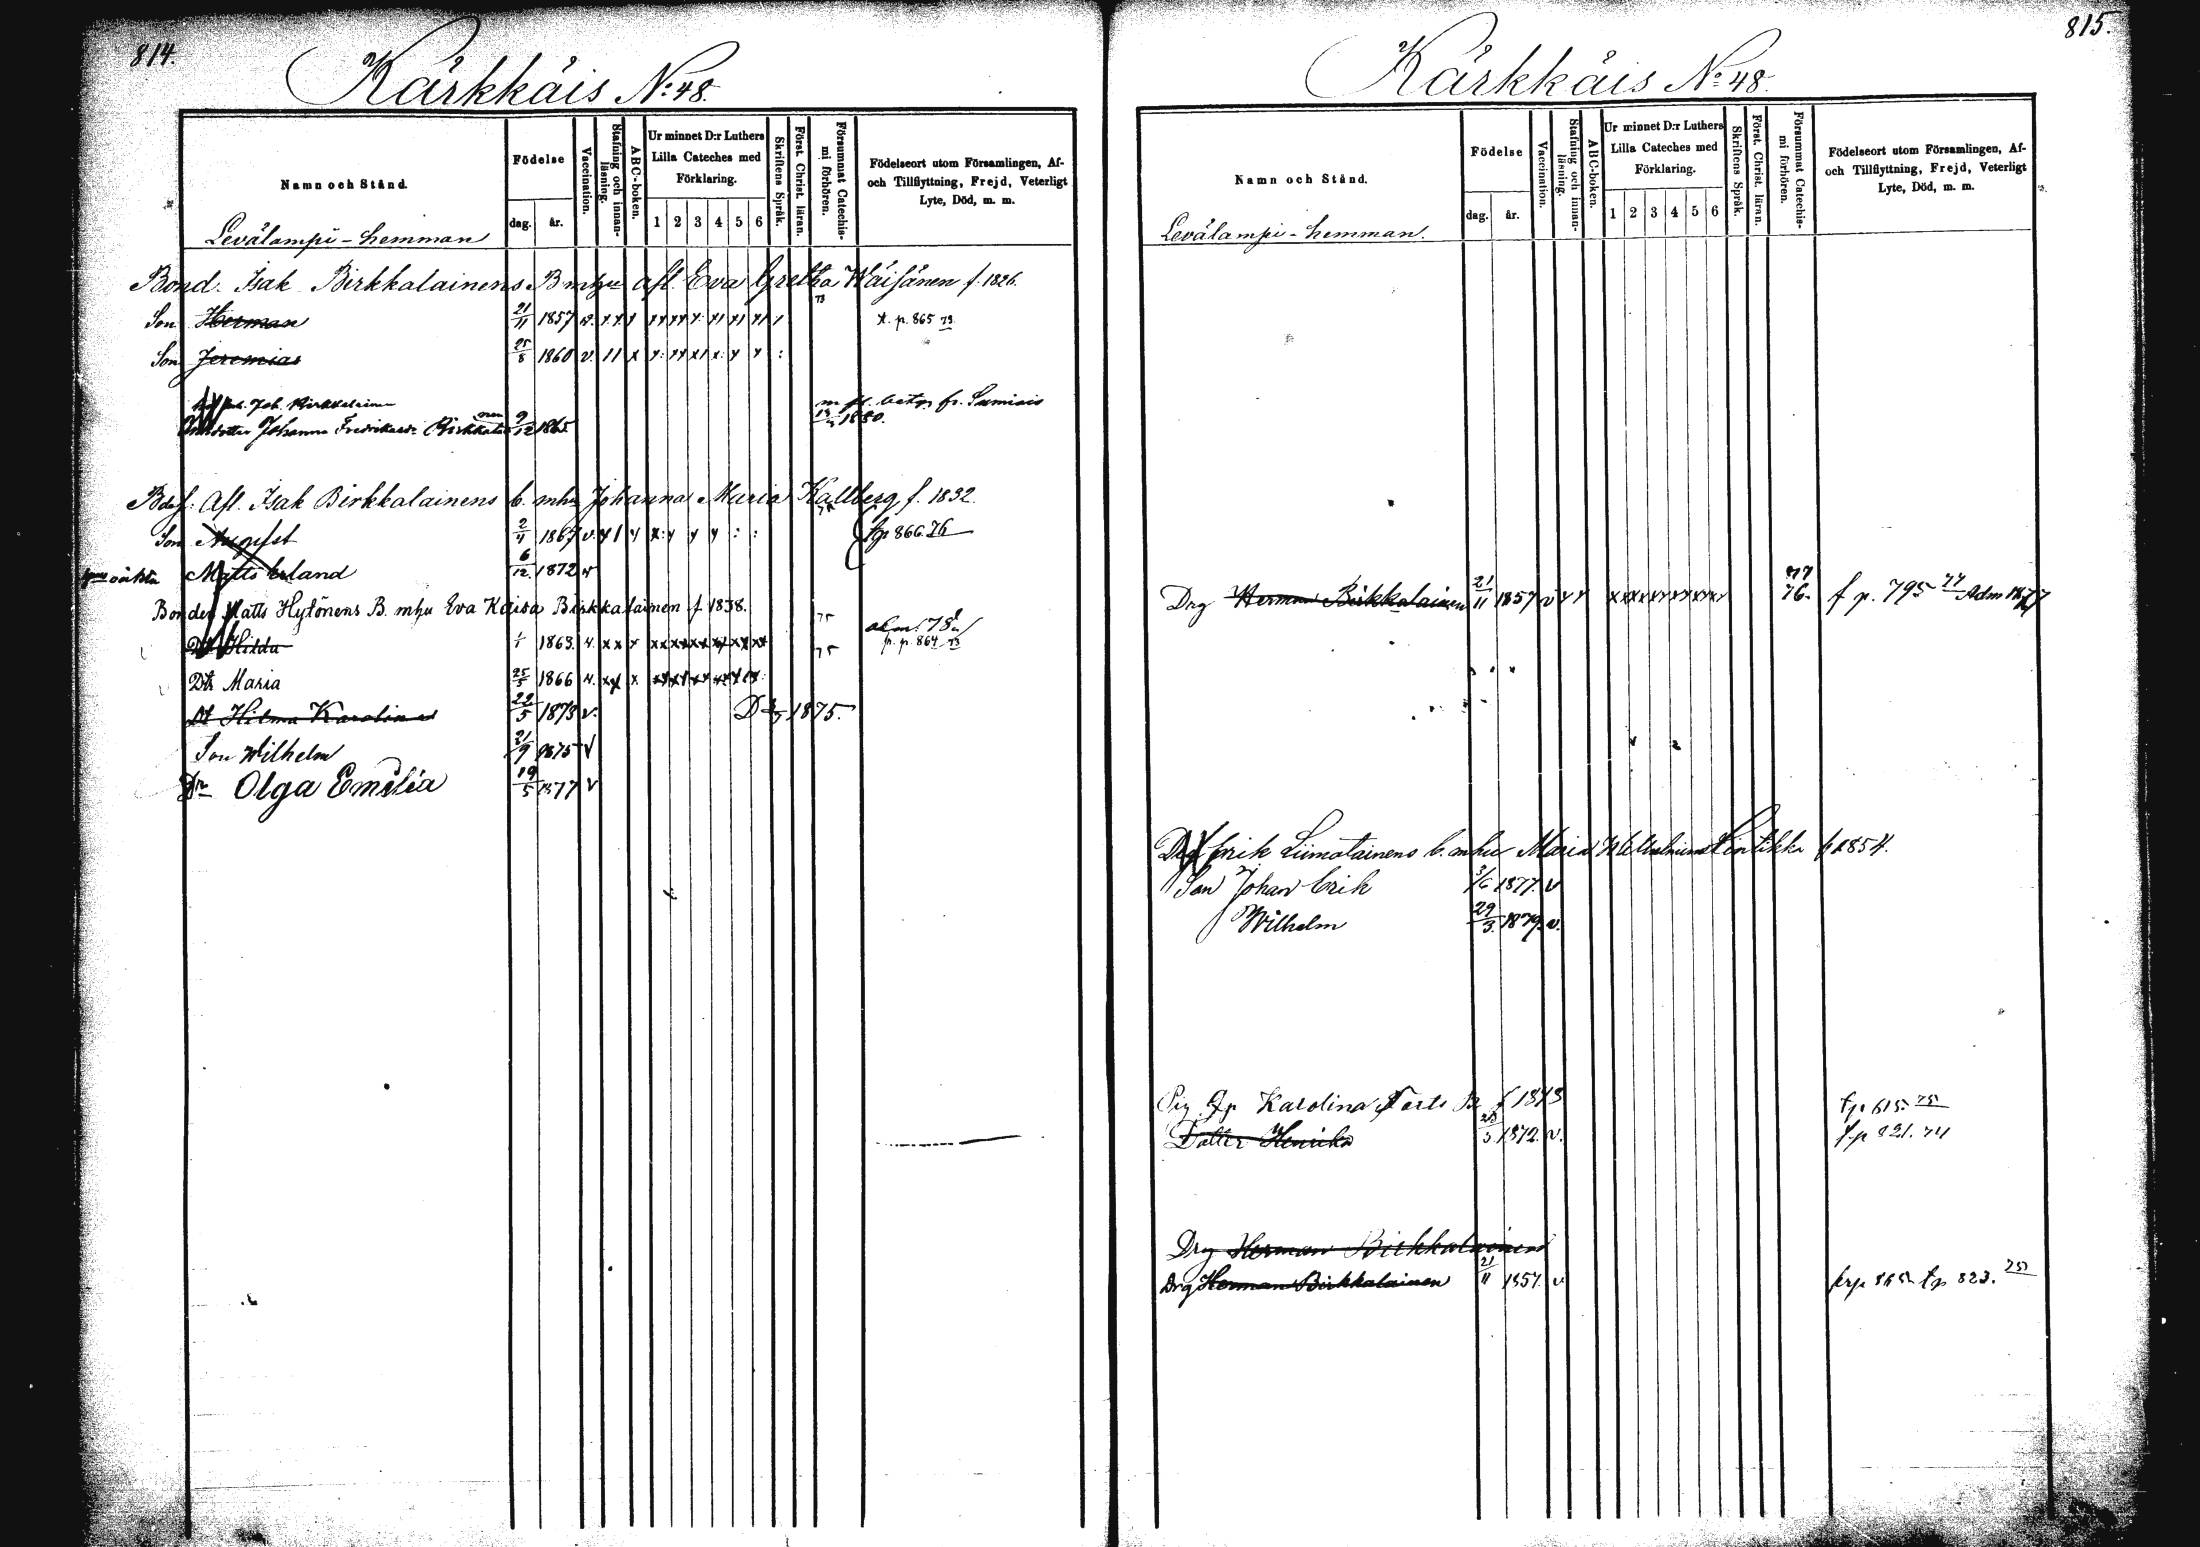 814.
Kärkkäis No: 48.
Namn och Stånd.
Födelse
dag. år.
Vaccination.
Stafning och innanläsning.
ABC-boken.
Ur minnet D:r Luthers Lilla Cateches med Förklaring.
1 2 3 4 5 6
Skriftens Språk.
Först. Christ. läran.
Försummat Catechismi förhören.
Födelseort utom Församlingen, Af-
och Tillflyttning, Frejd, Veterligt
Lyte, Död, m. m.
Levälampi-hemman
Bond. Isak Birkkalainens B mhu afl. Eva Gretha Wäisänen f. 1826.
73
Son Herman 21/11 1857 t. p. 865 73
Son Jeremias 25/8 1860 v.
Joh. Birkkalainen
Johanna Fredrika Birkkalainen 9/12 1865 betg. fr. Sumiais 1880.
Afl. Isak Birkkalainens b. mhu Johanna Maria Kallberg f. 1832.
Son August 2/4 1867 v. tp 866. 76
Matts Erland 6/12. 1872 v
Bonden Matts Hytönens B. mhu Eva Kaisa Birkkalainen f 1838.
Dr Hilda 1/1 1863. v. p. 864 73
Dtr Maria 25/5 1866 v.
Dt Hilma Karolina 22/5 1873 v. D 1875.
Son Wilhelm 21/9 1875 v
Dr Olga Emilia 19/5 1877 v
815.
Kärkkäis No: 48.
Namn och Stånd.
Födelse
dag. år.
Vaccination.
Stafning och innanläsning.
ABC-boken.
Ur minnet D:r Luthers Lilla Cateches med Förklaring.
1 2 3 4 5 6
Skriftens Språk.
Först. Christ. läran.
Försummat Catechismi förhören.
Födelseort utom Församlingen, Af-
och Tillflyttning, Frejd, Veterligt
Lyte, Död, m. m.
Levälampi-hemman.
Drg Herman Birkkalainen 21/11 1857 v 77 76. f p. 795 77 Adm 1877
Drg Erik Liimatainens b. mhu Maria Wilhelmina Lintikka f 1854.
Son Johan Erik 3/6 1877 v
Wilhelm 29/3. 1879. v.
Pig Karolina f 1843 tp 615. 75
Dotter Henrika 1872. v. f.p 821. 74
Drg Herman Birkkalainen
Drg Herman Birkkalainen 21/11 1857. v frp 865 tp 823. 75